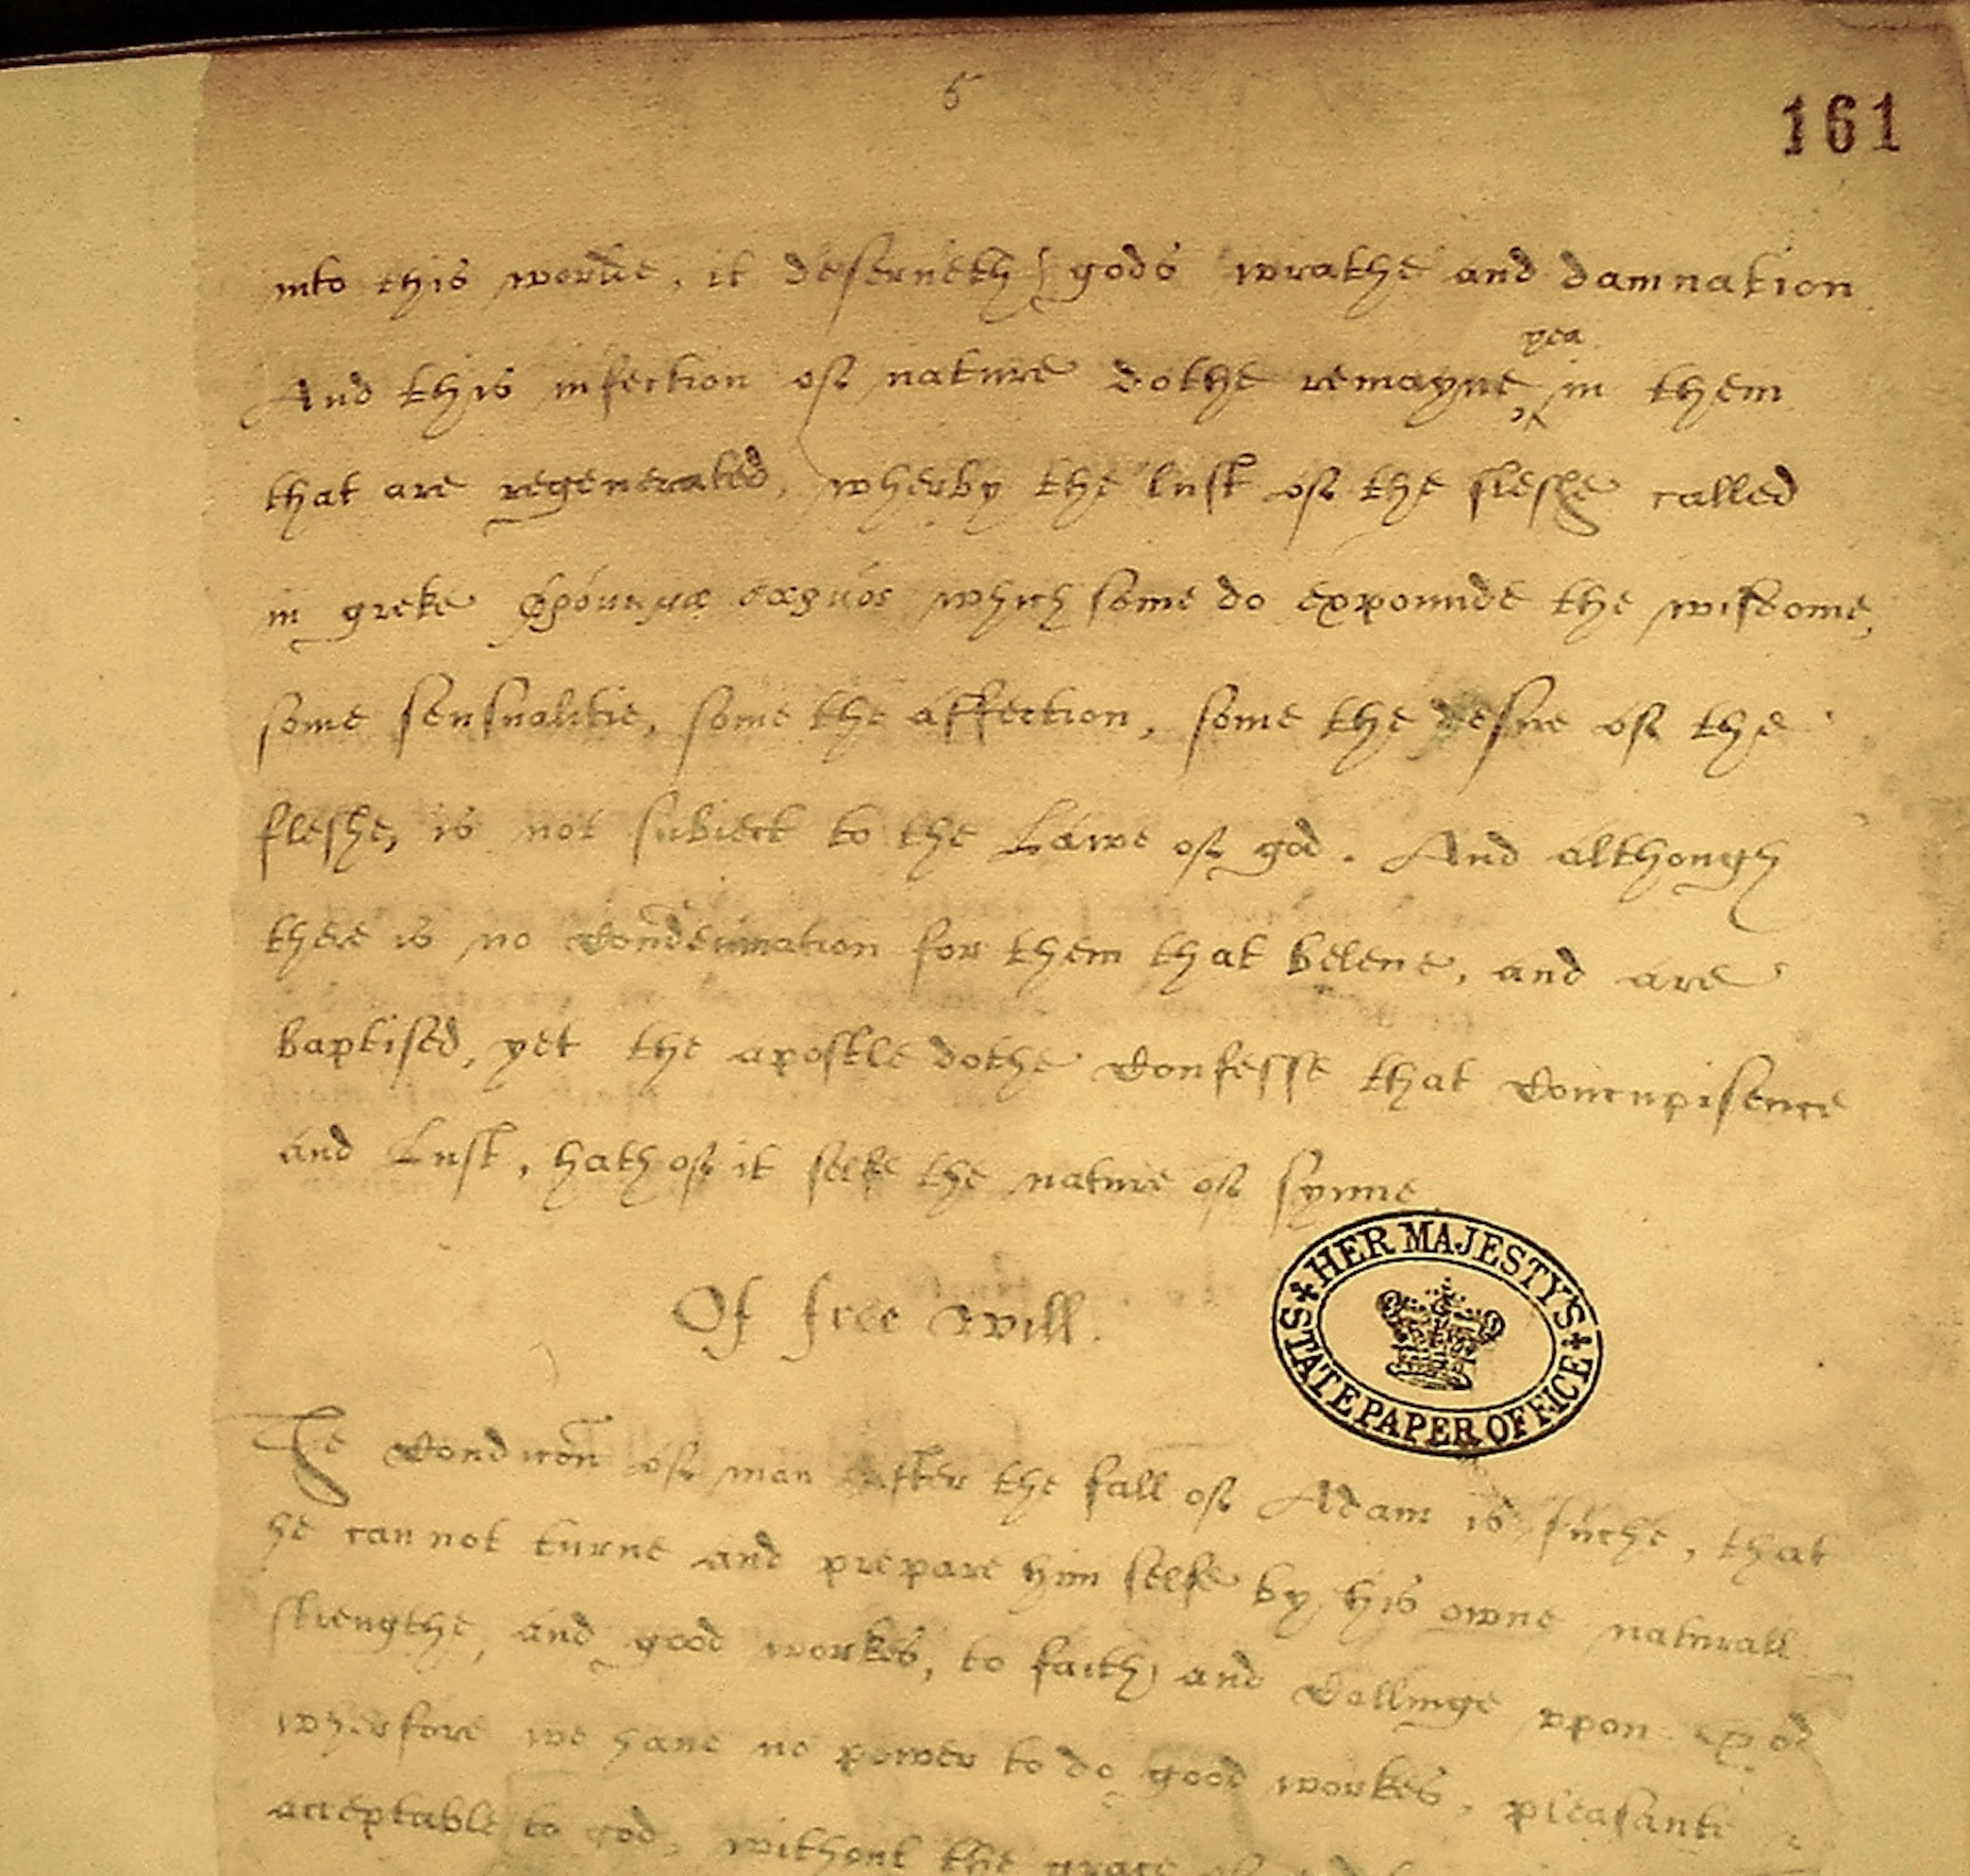 5
161
into this worlde, it deserueth gods wrathe and damnation
yea
And this infection of nature dothe remayne in them
that are regenerated, wherby the lust of the fleshe called
in greke φρόνημα σαρκὸς which some do expounde the wisdome,
some sensualitie, some the affection, some the desire of the
fleshe, is not subiect to the Lawe of god. And although
there is no Condemnation for them that beleue, and are
baptised, yet the apostle dothe Confesse that Concupisence
and Lust, hath of it selfe the nature of synne
HER MAJESTY'S STATE PAPER OFFICE
Of free will.
The Condicon of man after the fall of Adam is suche, that
he can not turne and prepare him selfe by his owne naturall
strengthe, and good workes, to faith, and Callinge vpon God
wherfore we haue no power to do good workes, pleasante
acceptable to god, without the grace of